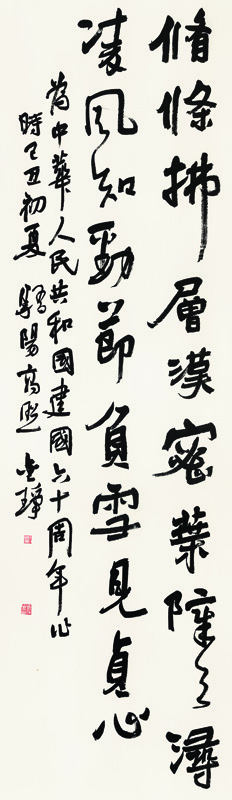 脩條拂層漢密葉障天潯
凌風知勁節負雪見貞心
為中華人民共和國建國六十周年作
時己丑初夏驕陽高照